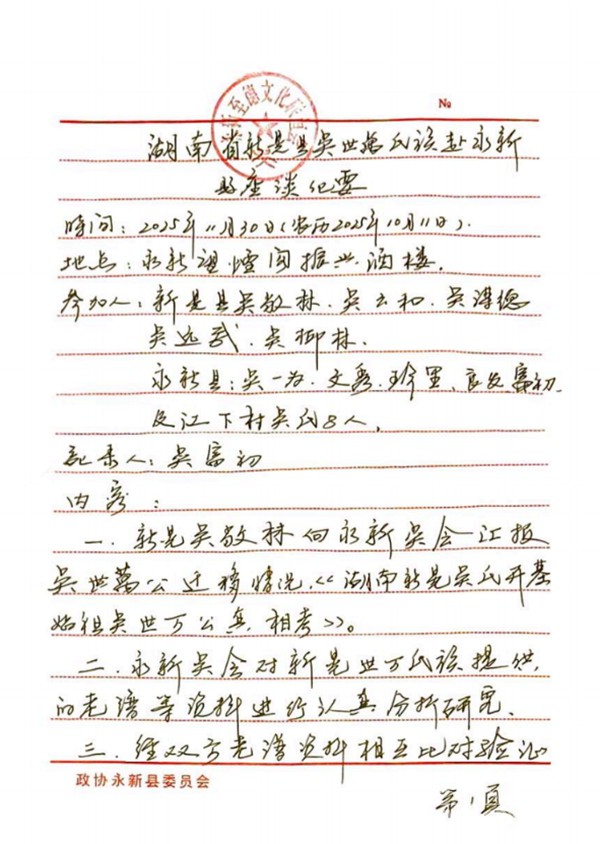 至德文化研
№
湖南省新晃县吴世万氏族赴永新
座谈纪要
时间：2025年11月30日(农历2025年10月11日).
地点：永新望烟阁振兴酒楼.
参加人：新晃县吴敬林.吴云和.吴谋德
吴远武.吴柳林.
永新县：吴一为.文秀.珍里、良发富初.
及江下村吴氏8人.
记录人：吴富初
内容：
一.新晃吴敬林向永新吴会汇报
吴世万公迁移情况，《湖南新晃吴氏开基
始祖吴世万公真相考》。
二.永新吴会对新晃世万氏族提供
的老谱等资料进行认真分析研究、
三.经双方老谱资料相互比对验证
政协永新县委员会
第1页